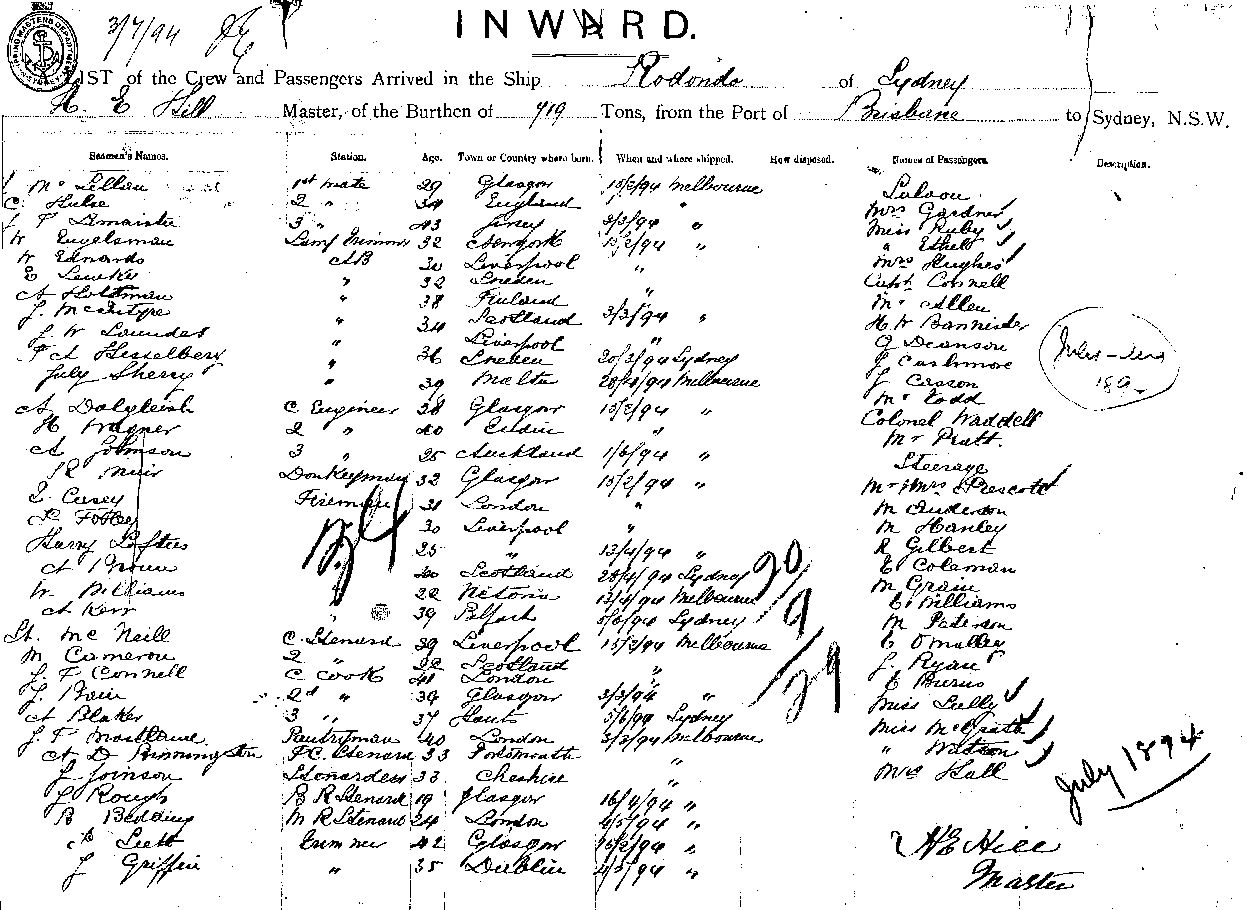 3/7/94
INWARD.
A LIST of the Crew and Passengers Arrived in the Ship Rodondo of Sydney
H. E Hill Master, of the Burthen of 719 Tons, from the Port of Brisbane to Sydney, N.S.W.
Seamen's Names. Station. Age. Town or Country where born. When and where shipped. How disposed. Names of Passengers. Description.
McLellan 1st mate 29 Glasgow 15/2/94 Melbourne Saloon
C. Hulse 2 " 34 England " Mrs Gardner
3 " 43 Jersey 3/3/94 " Miss Ruby
W Engelsman Lamp Trimmer 32 15/2/94 " " Ethel
W Edwards AB 30 Liverpool " Mrs Hughes
E " 32 Sweden Capt Connell
A Holtman " 38 Finland " Mr Allen
J. McIntyre " 34 Scotland 3/3/94 " H W Bannister
J. W Saunders " Liverpool " G Deanson
F A Hesselberg " 36 Sweden 20/3/94 Sydney J Cashmore
July Sherry " 39 Malta 28/4/94 Melbourne J Casson
Mr Todd
A Dalgleish C Engineer 38 Glasgow 15/2/94 " Colonel Waddell
H Wagner 2 " 40 " Mr Pratt.
A Johnson 3 " 25 Auckland 1/6/94 " Steerage
R Muir Donkeyman 32 Glasgow 15/2/94 " Mr & Mrs Prescott
Casey Fireman 31 London M Anderson
30 Liverpool " M Hanley
Harry Loftus 25 " 13/4/94 " R Gilbert
A Brown 40 Scotland 28/4/94 Sydney E Coleman
W Williams 22 Victoria 13/4/94 Melbourne M Grain
A Kerr " 39 Belfast 5/6/94 Sydney C Williams
M Paterson
St. McNeill C Steward 39 Liverpool 15/2/94 Melbourne C O'Malley
M Cameron 2 " 22 Scotland " J. Ryan
J. F Connell C Cook 41 London " C Burns
J. Bain 2d " 39 Glasgow 3/3/94 " Miss Lilly
A Blaker 3 " 37 Hants 5/6/94 Sydney Miss McGrath
J. F Pantryman 40 London 3/3/94 Melbourne " Watson
A D F.C. Steward 33 Portsmouth " Mrs Hall
J Joinson Stewardess 33 Cheshire "
J Rough B R Steward 19 Glasgow 16/4/94 "
B Bedding M R Steward 24 London 4/5/94 "
Trimmer 42 Glasgow 15/2/94 "
J Griffin " 35 Dublin 4/5/94 "
34
20
9
29
July 1894
H E Hill
Master